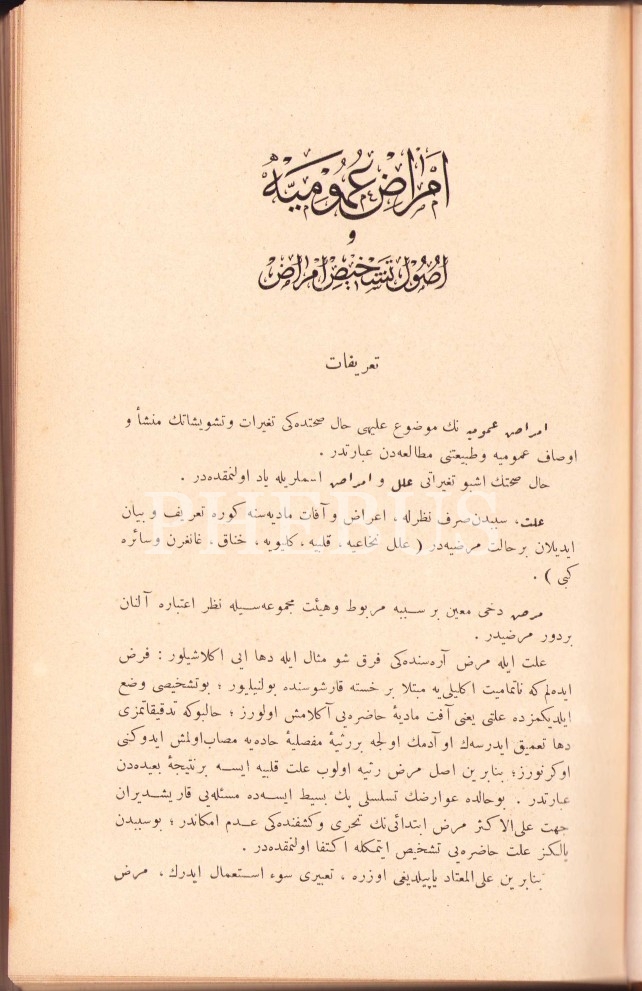 امراض عمومیه
و
اصول تشخیص امراض
تعریفات
امراض عمومیه نك موضوع علیهی حال صحتده‌كی تغیرات وتشویشاتك منشأ و
اوصاف عمومیه وطبیعتنی مطالعه‌دن عبارتدر .
حال صحتك اشبو تغیراتی علل و امراض اسملریله یاد اولنمقده‌در .
PHEBUS
علت، سببدن صرف نظرله ، اعراض و آفات مادیه‌سنه كوره تعریف و بیان
ایدیلان برحالت مرضیه‌در ( علل نخاعیه ، قلبیه ، كلیویه ، خناق ، غانغرن وسائره
كبی ) .
مرض دخی معین برسببه مربوط وهیئت مجموعه‌سیله نظر اعتباره آلنان
بردور مرضیدر .
علت ایله مرض آره‌سنده‌كی فرق شو مثال ایله دها ایی اكلاشیلور : فرض
ایده‌لم‌كه ناتمامیت اكلیلی‌یه مبتلا بر خسته قارشوسنده بولنیلیور ؛ بوتشخیصی وضع
ایلدیكمزده علتی یعنی آفت مادیهٔ حاضره‌یی آكلامش اولورز ؛ حالبوكه تدقیقاتمزی
دها تعمیق ایدرسه‌ك اوآدمك اولجه بررثیهٔ مفصلیهٔ حاده‌یه مصاب‌اولمش ایدوكنی
اوكرنورز؛ بنابرین اصل مرض رثیه اولوب علت قلبیه ایسه برنتیجهٔ بعیده‌دن
عبارتدر . بوحالده عوارضك تسلسلی پك بسیط ایسه‌ده مسئله‌یی قاریشدیران
جهت علی‌الاكثر مرض ابتدائی‌نك تحری وكشفنده‌كی عدم امكاندر ؛ بوسببدن
یالكز علت حاضره‌یی تشخیص ایتمكله اكتفا اولنمقده‌در .
بنابرین علی‌المعتاد یاپیلدیغی اوزره ، تعبیری سوء استعمال ایدرك ، مرض